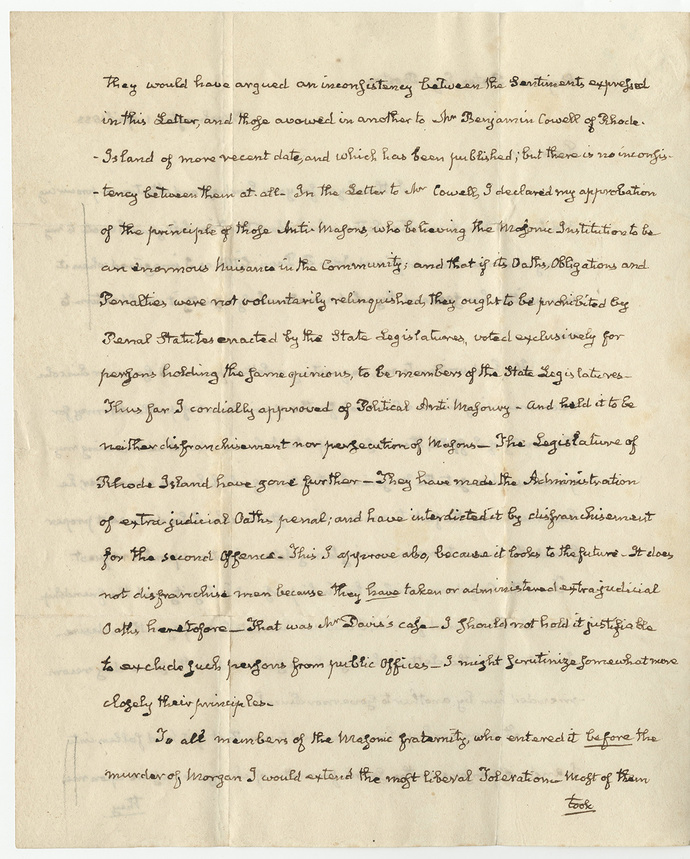 they would have argued an inconsistency between the Sentiments expressed
in this Letter, and those avowed in another to Mr Benjamin Cowell of Rhode-
-Island of more recent date, and which has been published; but there is no inconsis-
-tency between them at all- In the Letter to Mr Cowell, I declared my approbation
of the principle of those Anti-Masons, who believing the Masonic Institution to be
an enormous Nuisance in the Community; and that if its Oaths, Obligations and
Penalties were not voluntarily relinquished, they ought to be prohibited by
Penal Statutes enacted by the State Legislatures, voted exclusively for
persons holding the same opinions, to be members of the State Legislatures-
Thus far I cordially approved of Political Anti-Masonry - and held it to be
neither disfranchisement nor persecution of Masons- The Legislature of
Rhode Island have gone further - They have made the Administration
of extra-judicial Oaths penal; and have interdicted it by disfranchisement
for the second Offence- This I approve also, because it looks to the future- It does
not disfranchise men because they have taken or administered extrajudicial
Oaths heretofore- That was Mr Davis's case- I should not hold it justifiable
to exclude such persons from public Offices- I might scrutinize somewhat more
closely their principles-
To all members of the Masonic fraternity, who entered it before the
murder of Morgan I would extend the most liberal Toleration- Most of them
took